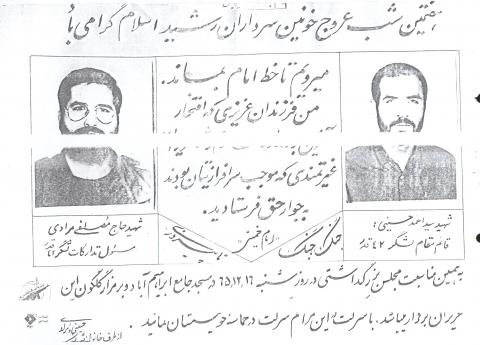 هفتمین شب عروج خونین سرداران رشید اسلام گرامی باد
میرویم تا خط امام بماند.
من فرزندان عزیزی که افتخار
غیرتمندی که موجب سرافرازیتان بودند
به جوار حق فرستادید.
امام خمینی
جنگ جنگ
شهید سید احمد حسینی:
قائم مقام لشگر ۴۲ قدر
شهید حاج مصطفی مرادی
مسئول تدارکات لشگر ۴۲ قدر
به همین مناسبت مجلس بزرگداشتی در روز شنبه ۶۵،۱۲،۱۶ در مسجد جامع ابراهیم آباد و بر مزار گلگون این
عزیزان برقرار میباشد. با شرکت در این مراسم شرکت در حماسه خونینشان نمائید.
از طرف خانواده